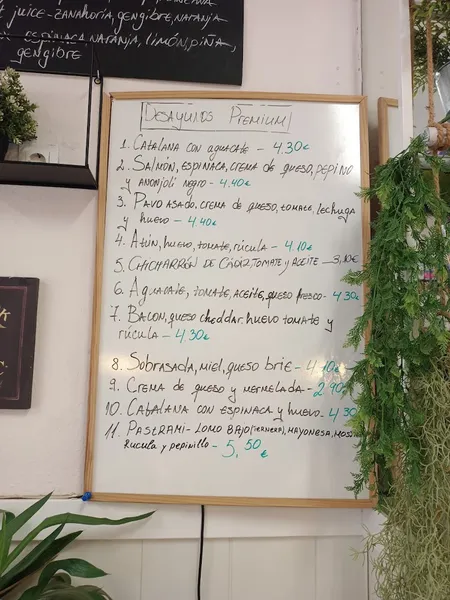 juice-ZANAHORIA, GENGIBRE, NARANJA
ESPINACA, NARANJA, LIMÓN, PIÑA,
GENGIBRE
DESAYUNOS PREMIUM
1. CATALANA CON AGUACATE - 4.30€
2. SALMÓN, ESPINACA, CREMA DE QUESO, PEPINO
Y ANONJOLI NEGRO - 4.40€
3. PAVO ASADO, CREMA DE QUESO, TOMATE, LECHUGA
Y HUEVO - 4.40€
4. ATÚN, HUEVO, TOMATE, RÚCULA - 4.10€
5. CHICHARRÓN DE CÁDIZ, TOMATE Y ACEITE - 3,10€
6. AGUACATE, TOMATE, ACEITE, QUESO FRESCO - 4.30€
7. BACON, QUESO CHEDDAR, HUEVO TOMATE Y
RÚCULA - 4.30€
8. SOBRASADA, MIEL, QUESO BRIE - 4.10€
9. CREMA DE QUESO Y MERMELADA - 2.90
10. CATALANA CON ESPINACA Y HUEVO - 4.30
11. PASTRAMI - LOMO BAJO (TERNERA), MAYONESA,
RUCULA Y PEPINILLO - 5,50€